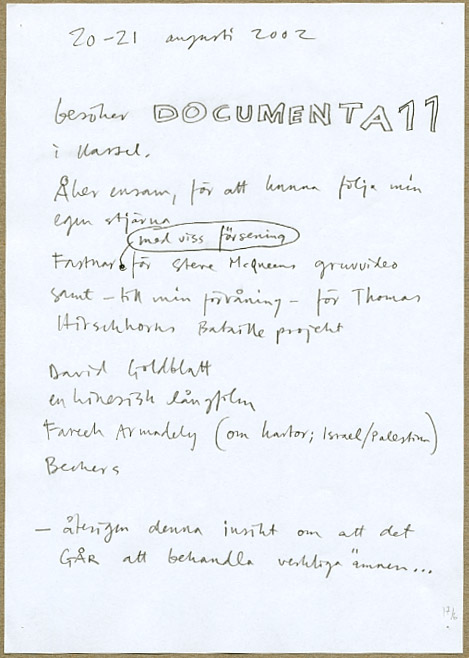 20-21 augusti 2002
besöker DOCUMENTA 11
i Kassel.
Åker ensam, för att kunna följa min
egen stjärna
med viss försening
Fastnar för Steve McQueens gruvvideo
samt – till min förvåning – för Thomas
Hirschhorns Bataille projekt
David Goldblatt
en kinesisk långfilm
Fareed Armaly (om kartor; Israel/Palestina)
Bechers
– återigen denna insikt om att det
GÅR att behandla verkliga ämnen...